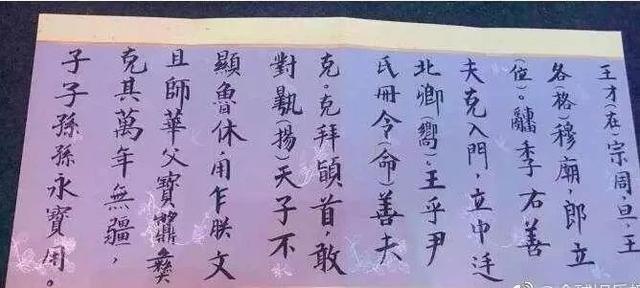 王才(在)宗周,旦,王
各(格)穆廟,郎立
(位)。季右善
夫克入門,立中廷
北卿(嚮)。王乎尹
氏冊令(命)善夫
克。克拜首,敢
對(揚)天子不
顯魯休用乍朕文
且師華父寶彝
克其萬年無疆,
子子孫孫永寶用。